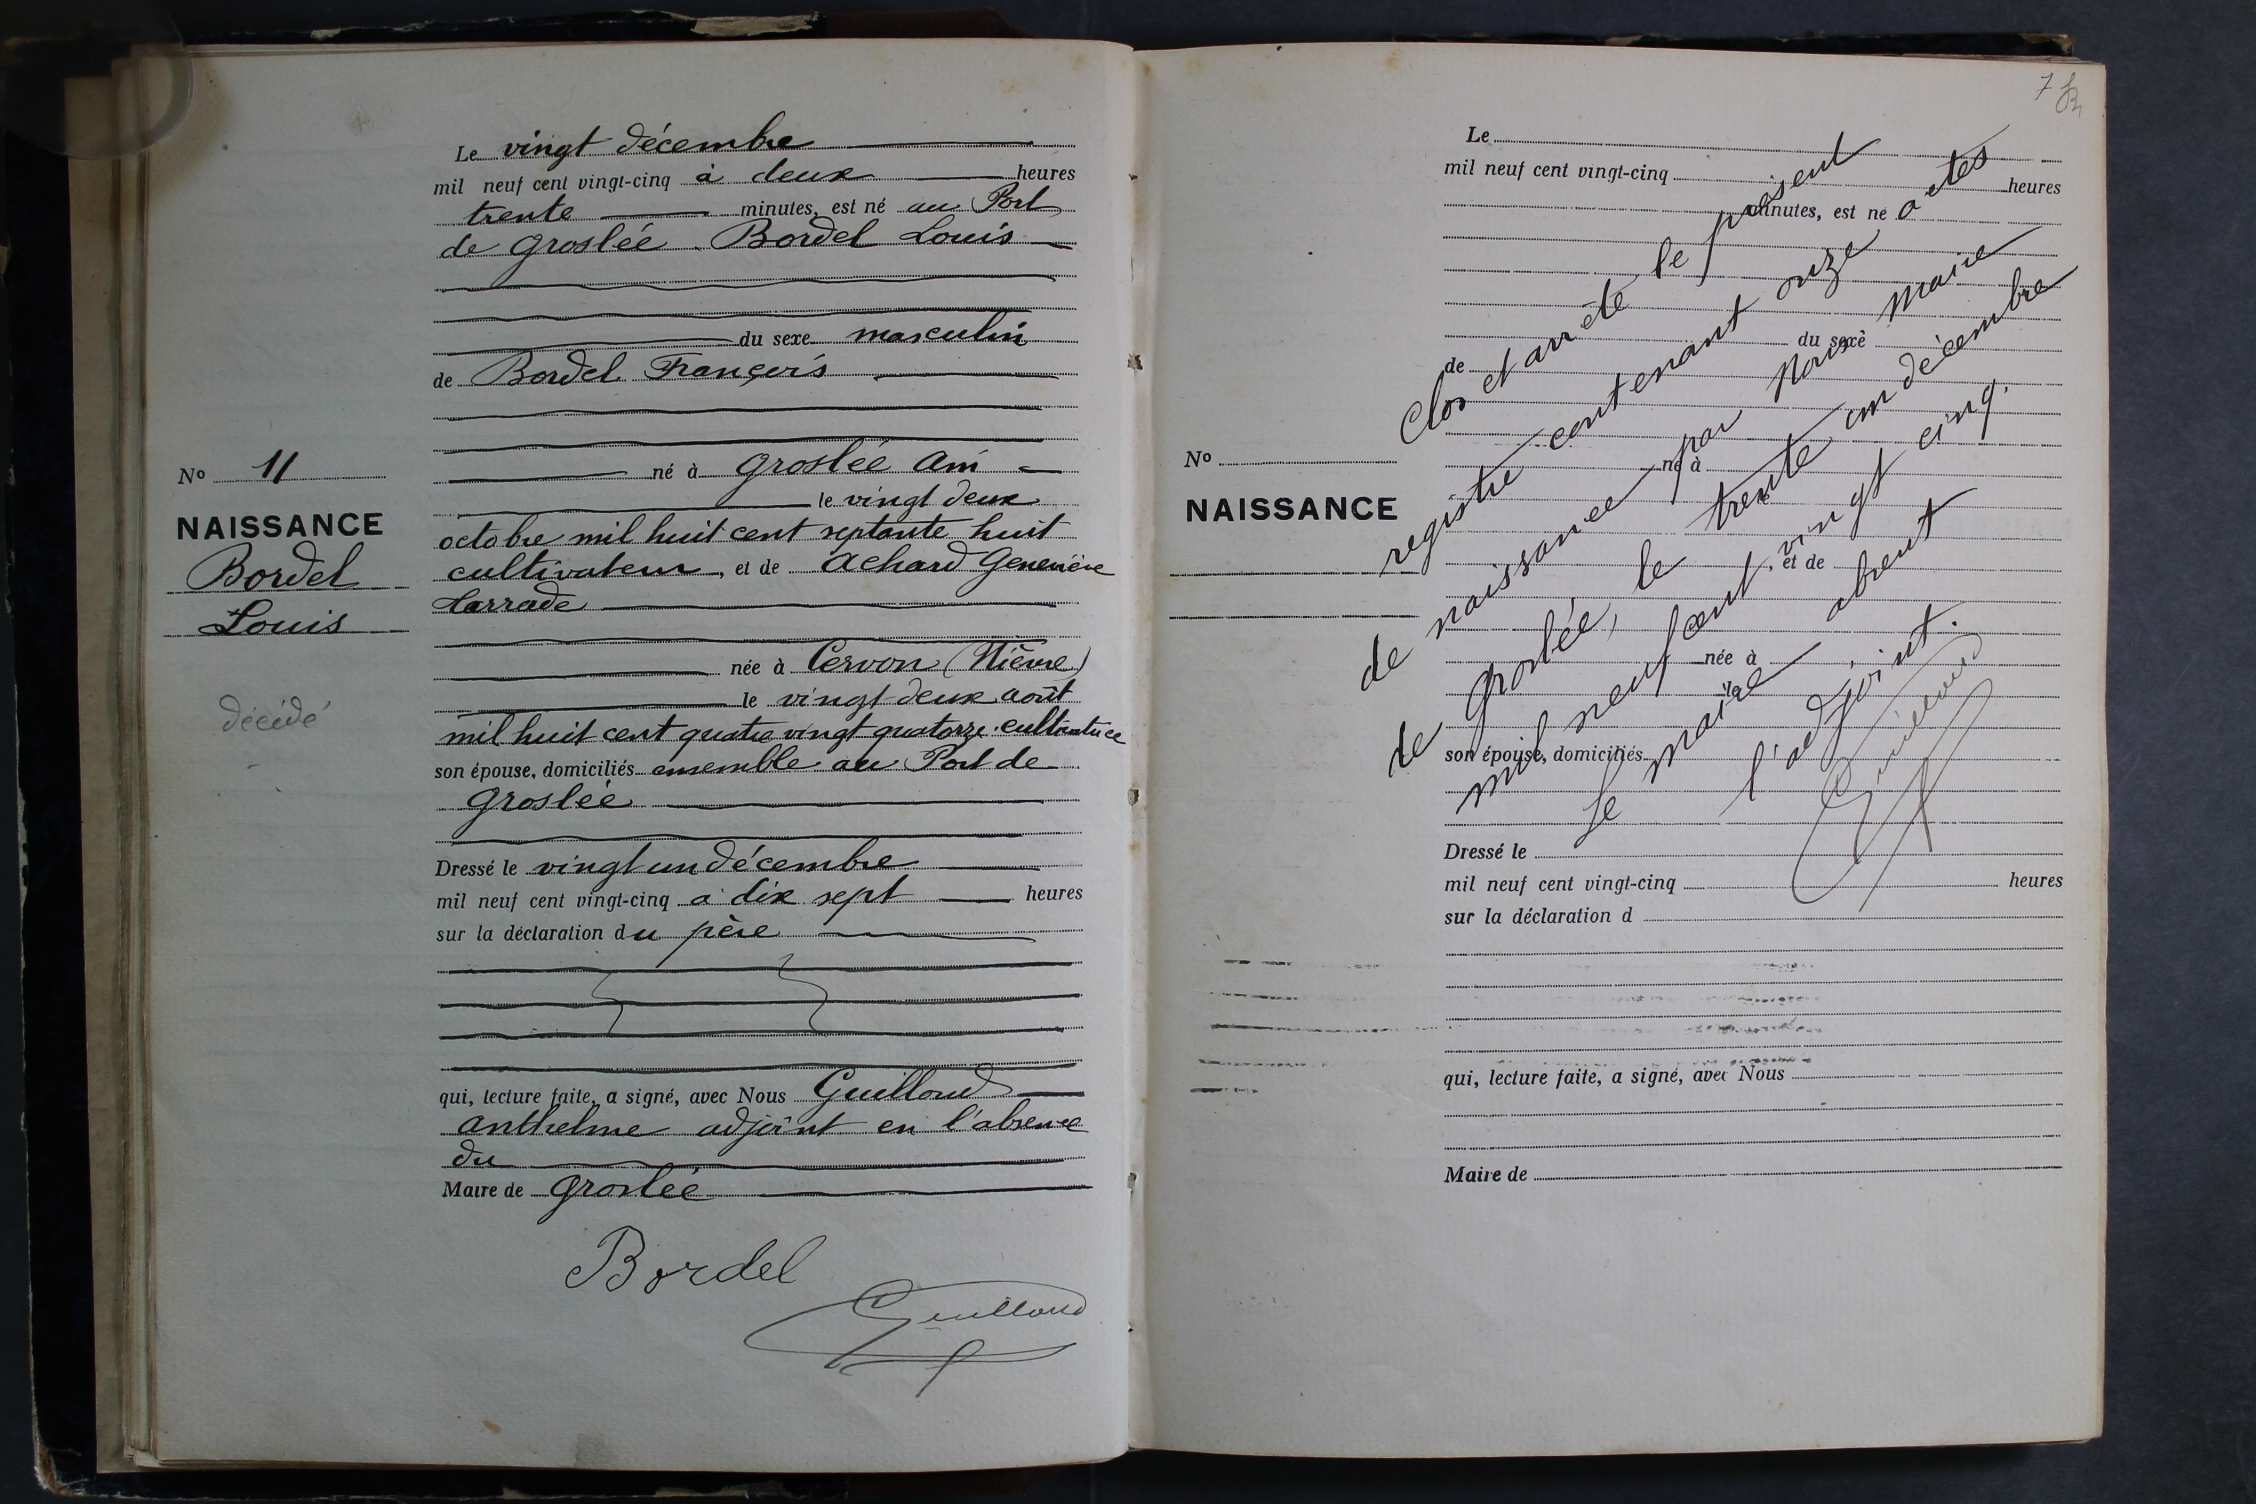 Le vingt décembre
mil neuf cent vingt-cinq à deux heures
trente minutes, est né au Port
de Groslée Bordel Louis
du sexe masculin
de Bordel François
né à Groslée Ain
le vingt deux
octobre mil huit cent septante huit
cultivateur, et de Achard Geneviève
Larrade
née à Cervon (Nièvre)
le vingt deux août
mil huit cent quatre vingt quatorze cultivatrice
son épouse, domiciliés ensemble au Port de
Groslée
Dressé le vingt un décembre
mil neuf cent vingt-cinq à dix sept heures
sur la déclaration du père
qui, lecture faite, a signé, avec Nous Guilloud
Anthelme adjoint en l'absence
du
Maire de Groslée
Bordel
Guilloud
No 11
NAISSANCE
Bordel
Louis
décédé
7
Le
mil neuf cent vingt-cinq heures
minutes, est né
du sexe
de
né à
et de
née à
le
son épouse, domiciliés
Dressé le
mil neuf cent vingt-cinq heures
sur la déclaration d
qui, lecture faite, a signé, avec Nous
Maire de
No
NAISSANCE
Clos et arrêté le présent
registre contenant onze actes
de naissance par Nous Maire
de Groslée, le trente un décembre
mil neuf cent vingt cinq.
Le maire absent
l'adjoint.
Guilloud